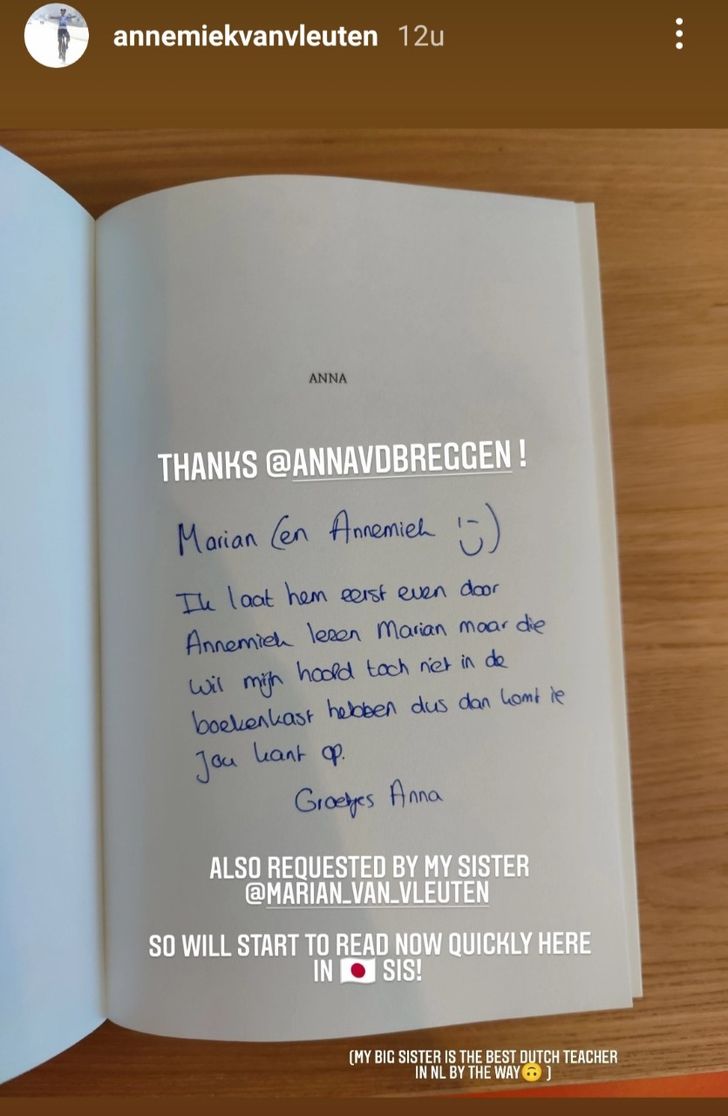 annemiekvanvleuten 12u
ANNA
THANKS @ANNAVDBREGGEN !
Marian (en Annemiek :-))
Ik laat hem eerst even door
Annemiek lezen Marian maar die
wil mijn hoofd toch niet in de
boekenkast hebben dus dan komt ie
jou kant op.
Groetjes Anna
ALSO REQUESTED BY MY SISTER
@MARIAN_VAN_VLEUTEN
SO WILL START TO READ NOW QUICKLY HERE
IN 🇯🇵 SIS!
(MY BIG SISTER IS THE BEST DUTCH TEACHER
IN NL BY THE WAY🙃 )